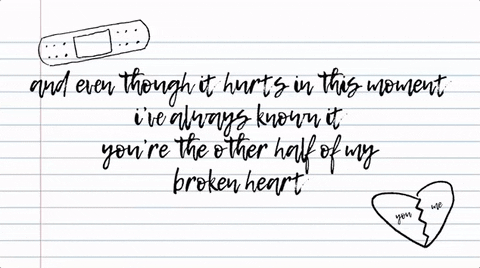 and even though it hurts in this moment
i've always known it
you're the other half of my
broken heart
you me